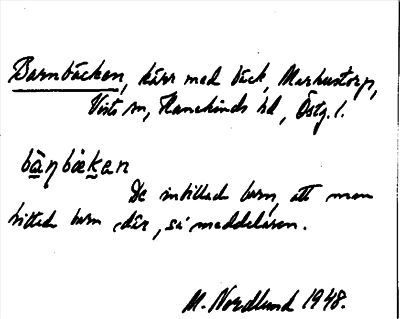 Barnbäcken, kärr med bäck, Markustorp,
Viste sn, Hanekinds hd, Östg. l.
bānbækan
De inbillade barn, att man
hittade barn där, så meddelaren.
M. Nordlund 1948.